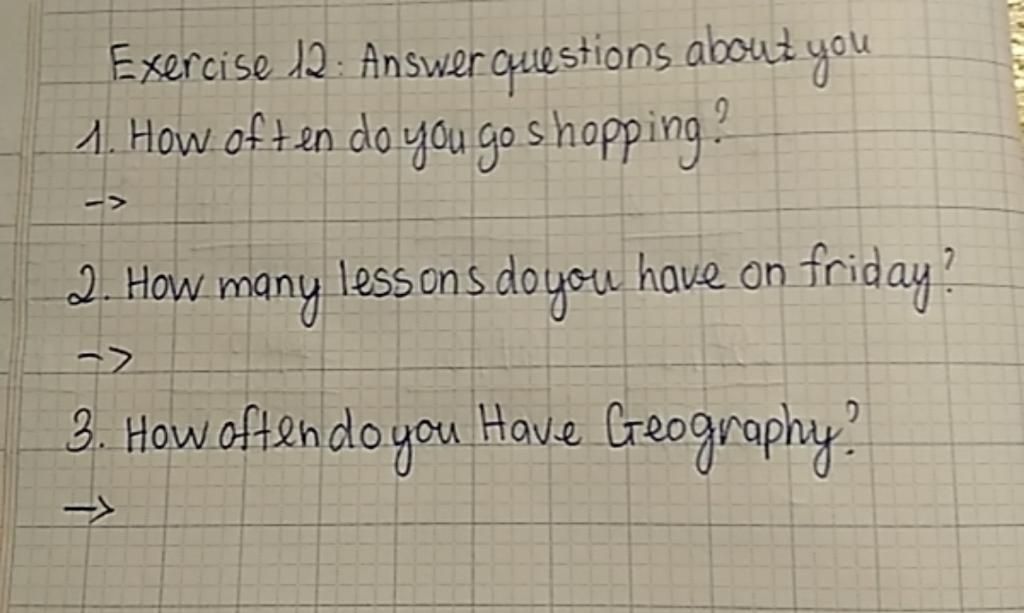 Exercise 12: Answer questions about you
1. How often do you go shopping?
->
2. How many lessons do you have on friday?
->
3. How often do you Have Geography?
->